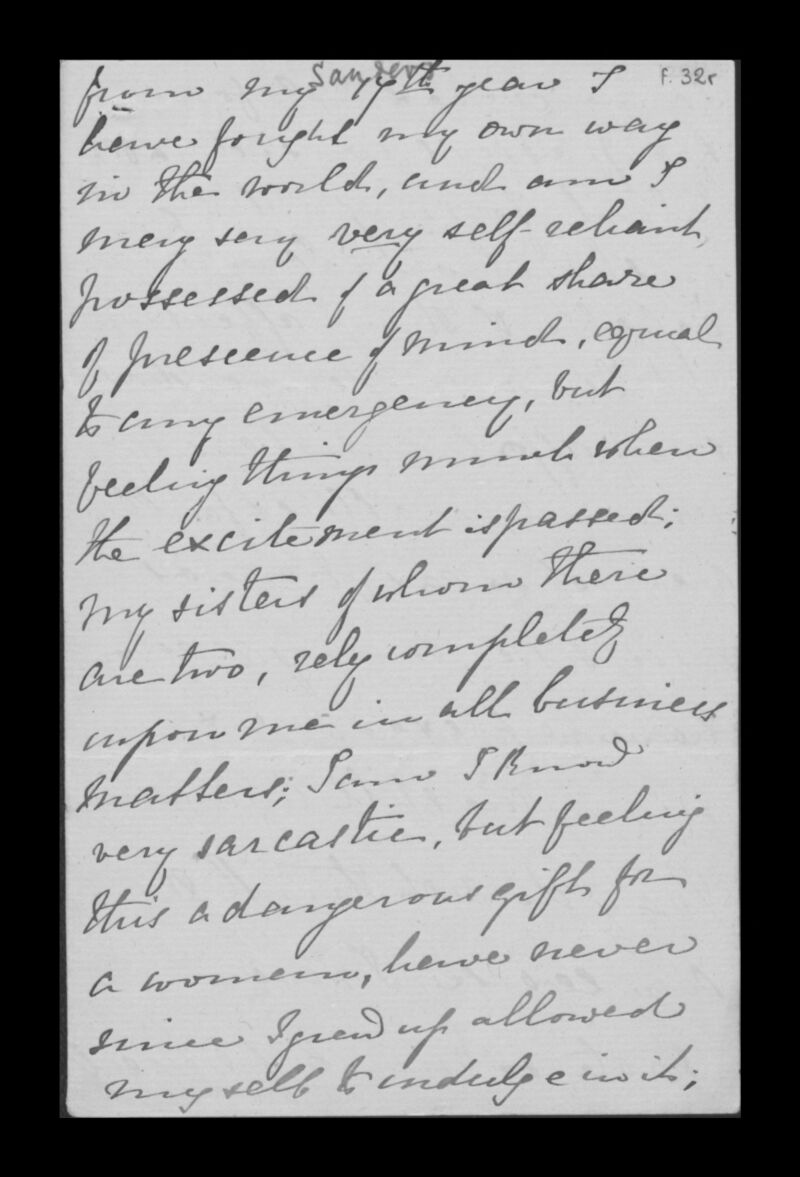 Sanders
F. 32r
from my 19th year I
have fought my own way
in the world, and am I
may say very self-reliant,
possessed of a great share
of prescence of mind, equal
to any emergency, but
feeling things much when
the excitement is passed;
my sisters of whom there
are two, rely completely
upon me in all business
matters; I am I know
very sarcastic, but feeling
this a dangerous gift for
a woman, have never
since I grew up allowed
myself to indulge in it;